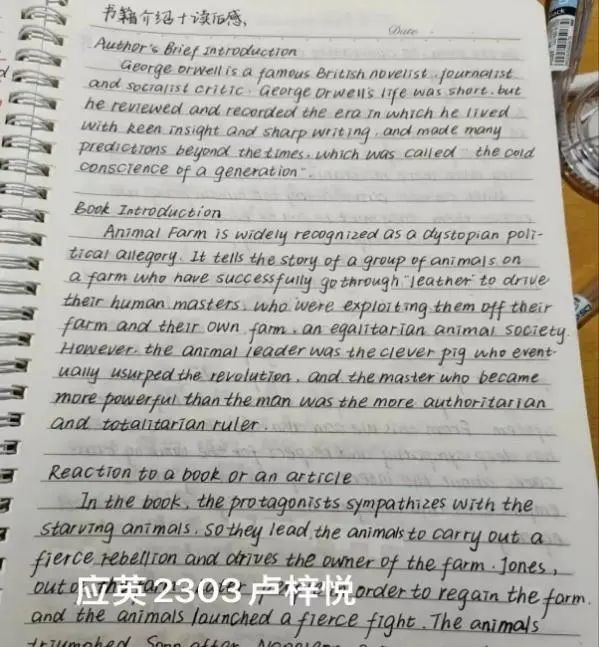 书籍介绍+读后感.
Date
Author's Brief Introduction
George Orwell is a famous British novelist, journalist
and socialist critic. George Orwell's life was short, but
he reviewed and recorded the era in which he lived
with keen insight and sharp writing, and made many
predictions beyond the times, which was called "the cold
conscience of a generation".
Book Introduction
Animal Farm is widely recognized as a dystopian poli-
tical allegory. It tells the story of a group of animals on
a farm who have successfully go through "leather" to drive
their human masters, who were exploiting them off their
farm and their own farm, an egalitarian animal society.
However, the animal leader was the clever pig who event-
ually usurped the revolution, and the master who became
more powerful than the man was the more authoritarian
and totalitarian ruler.
Reaction to a book or an article
In the book, the protagonists sympathizes with the
starving animals, so they lead the animals to carry out a
fierce rebellion and drives the owner of the farm, Jones,
out order to regain the farm.
应英2303卢梓悦
and the animals launched a fierce fight. The animals
triumphed. Soon after